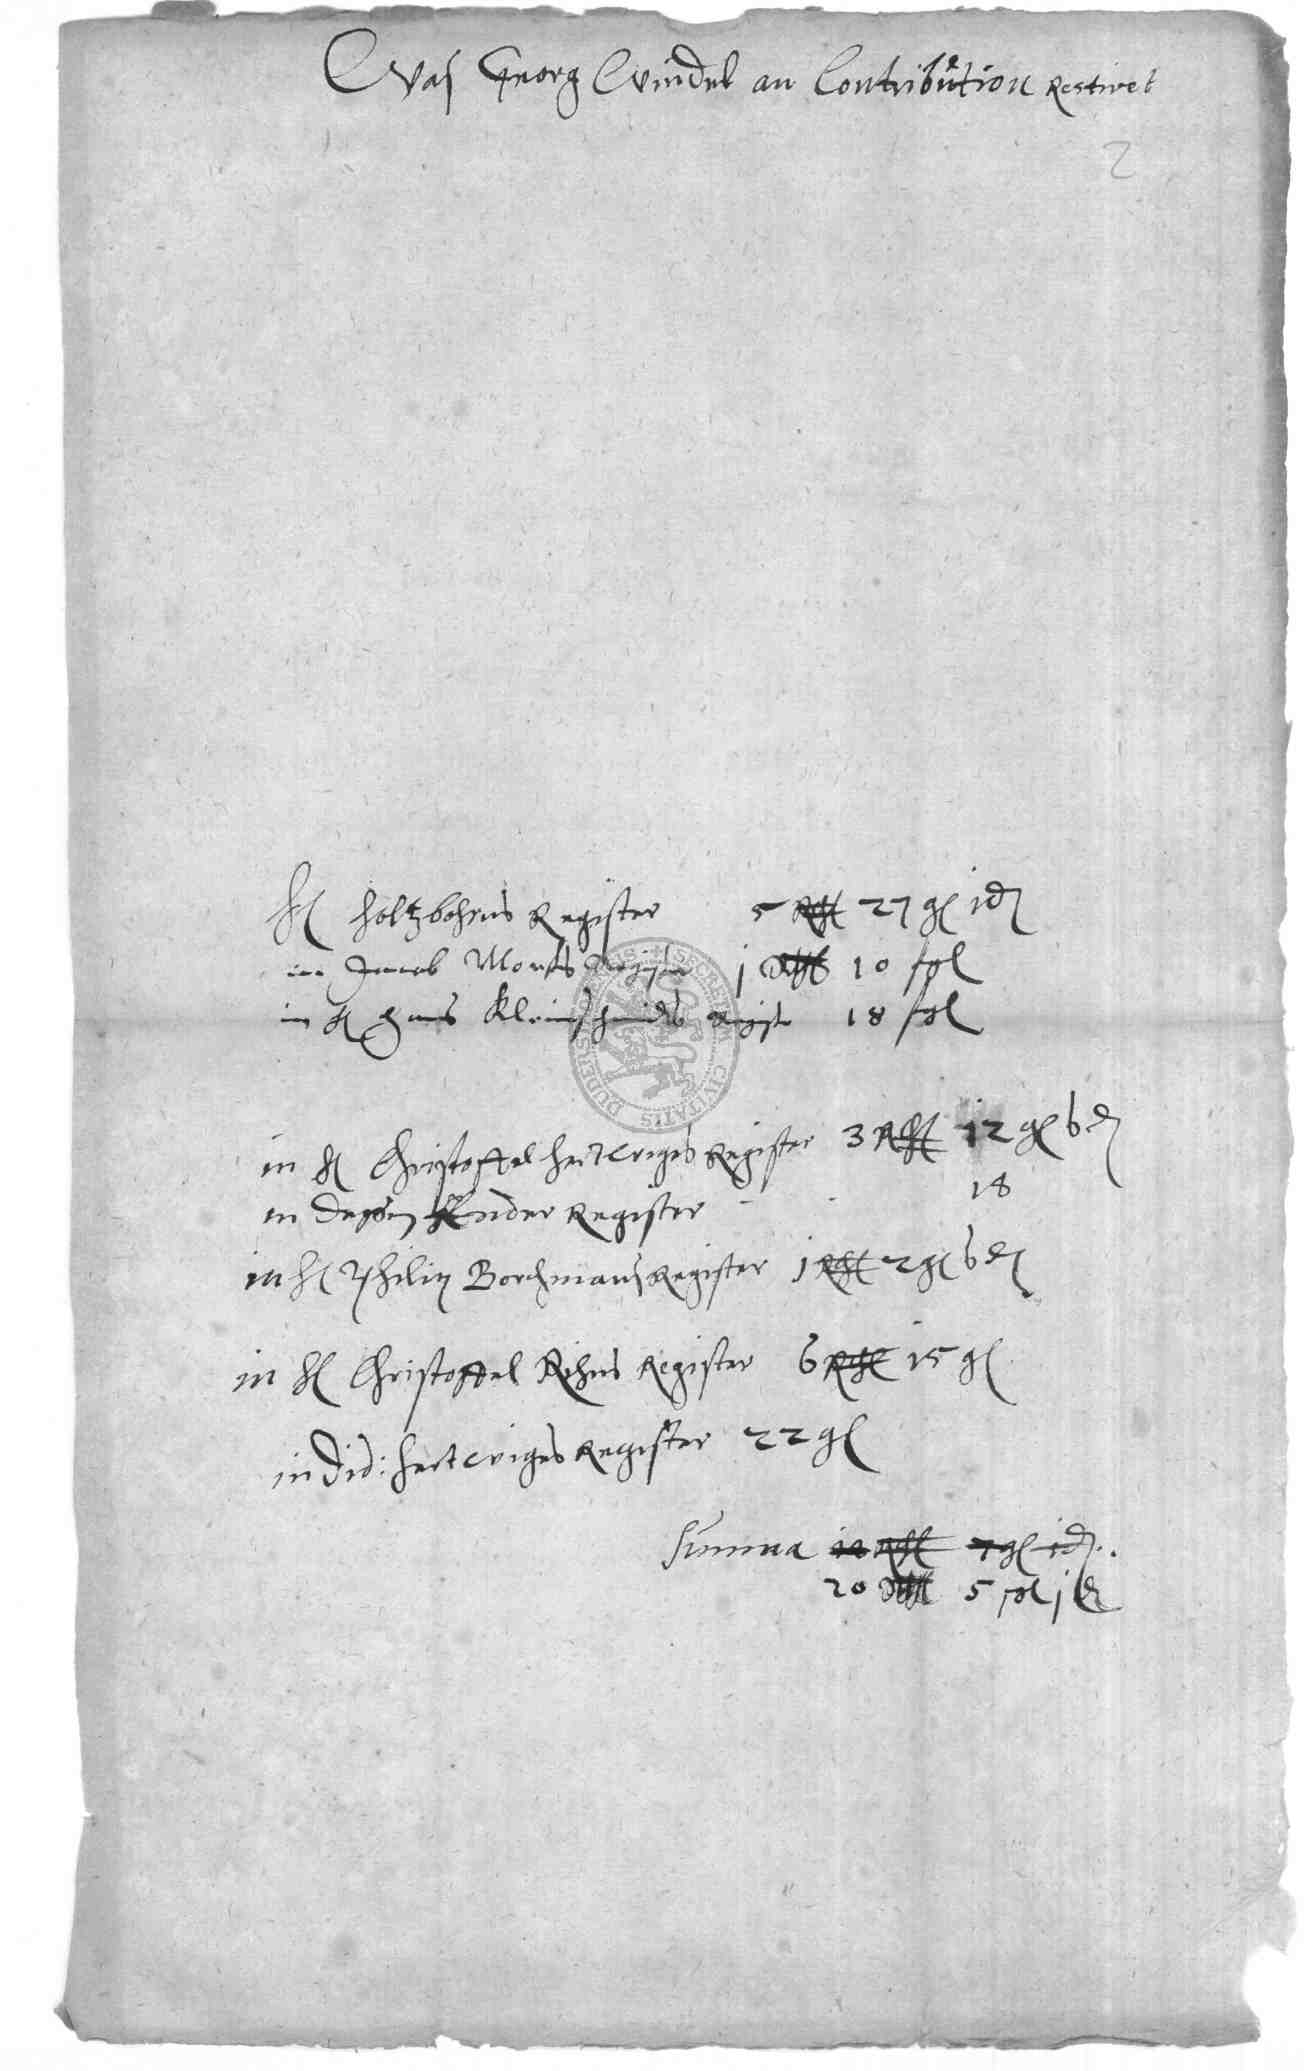 Waß Georg Windel an Contribution Restiret
2
H Holtzbohrns Register 5 Rthl 27 gl 1 d
in Jacob Monts Register j Rthl 10 ßgl
in H Hans Kleinschmides Regist 18 ßgl
in H Christoffel Hertwiges Register 3 Rthl 12 gl 6 d
in deßen ander Register 18
in H Philip Borchmanß Register j Rthl 2 gl 6 d
in H Christoffel Rihns Register 6 Rthl 15 gl
in Did: Hertwiges Register 22 gl
Summa Rthl 7 gl 1 d.
20 Rthl 5 ßgl j d
SECRETUM CIVITATIS